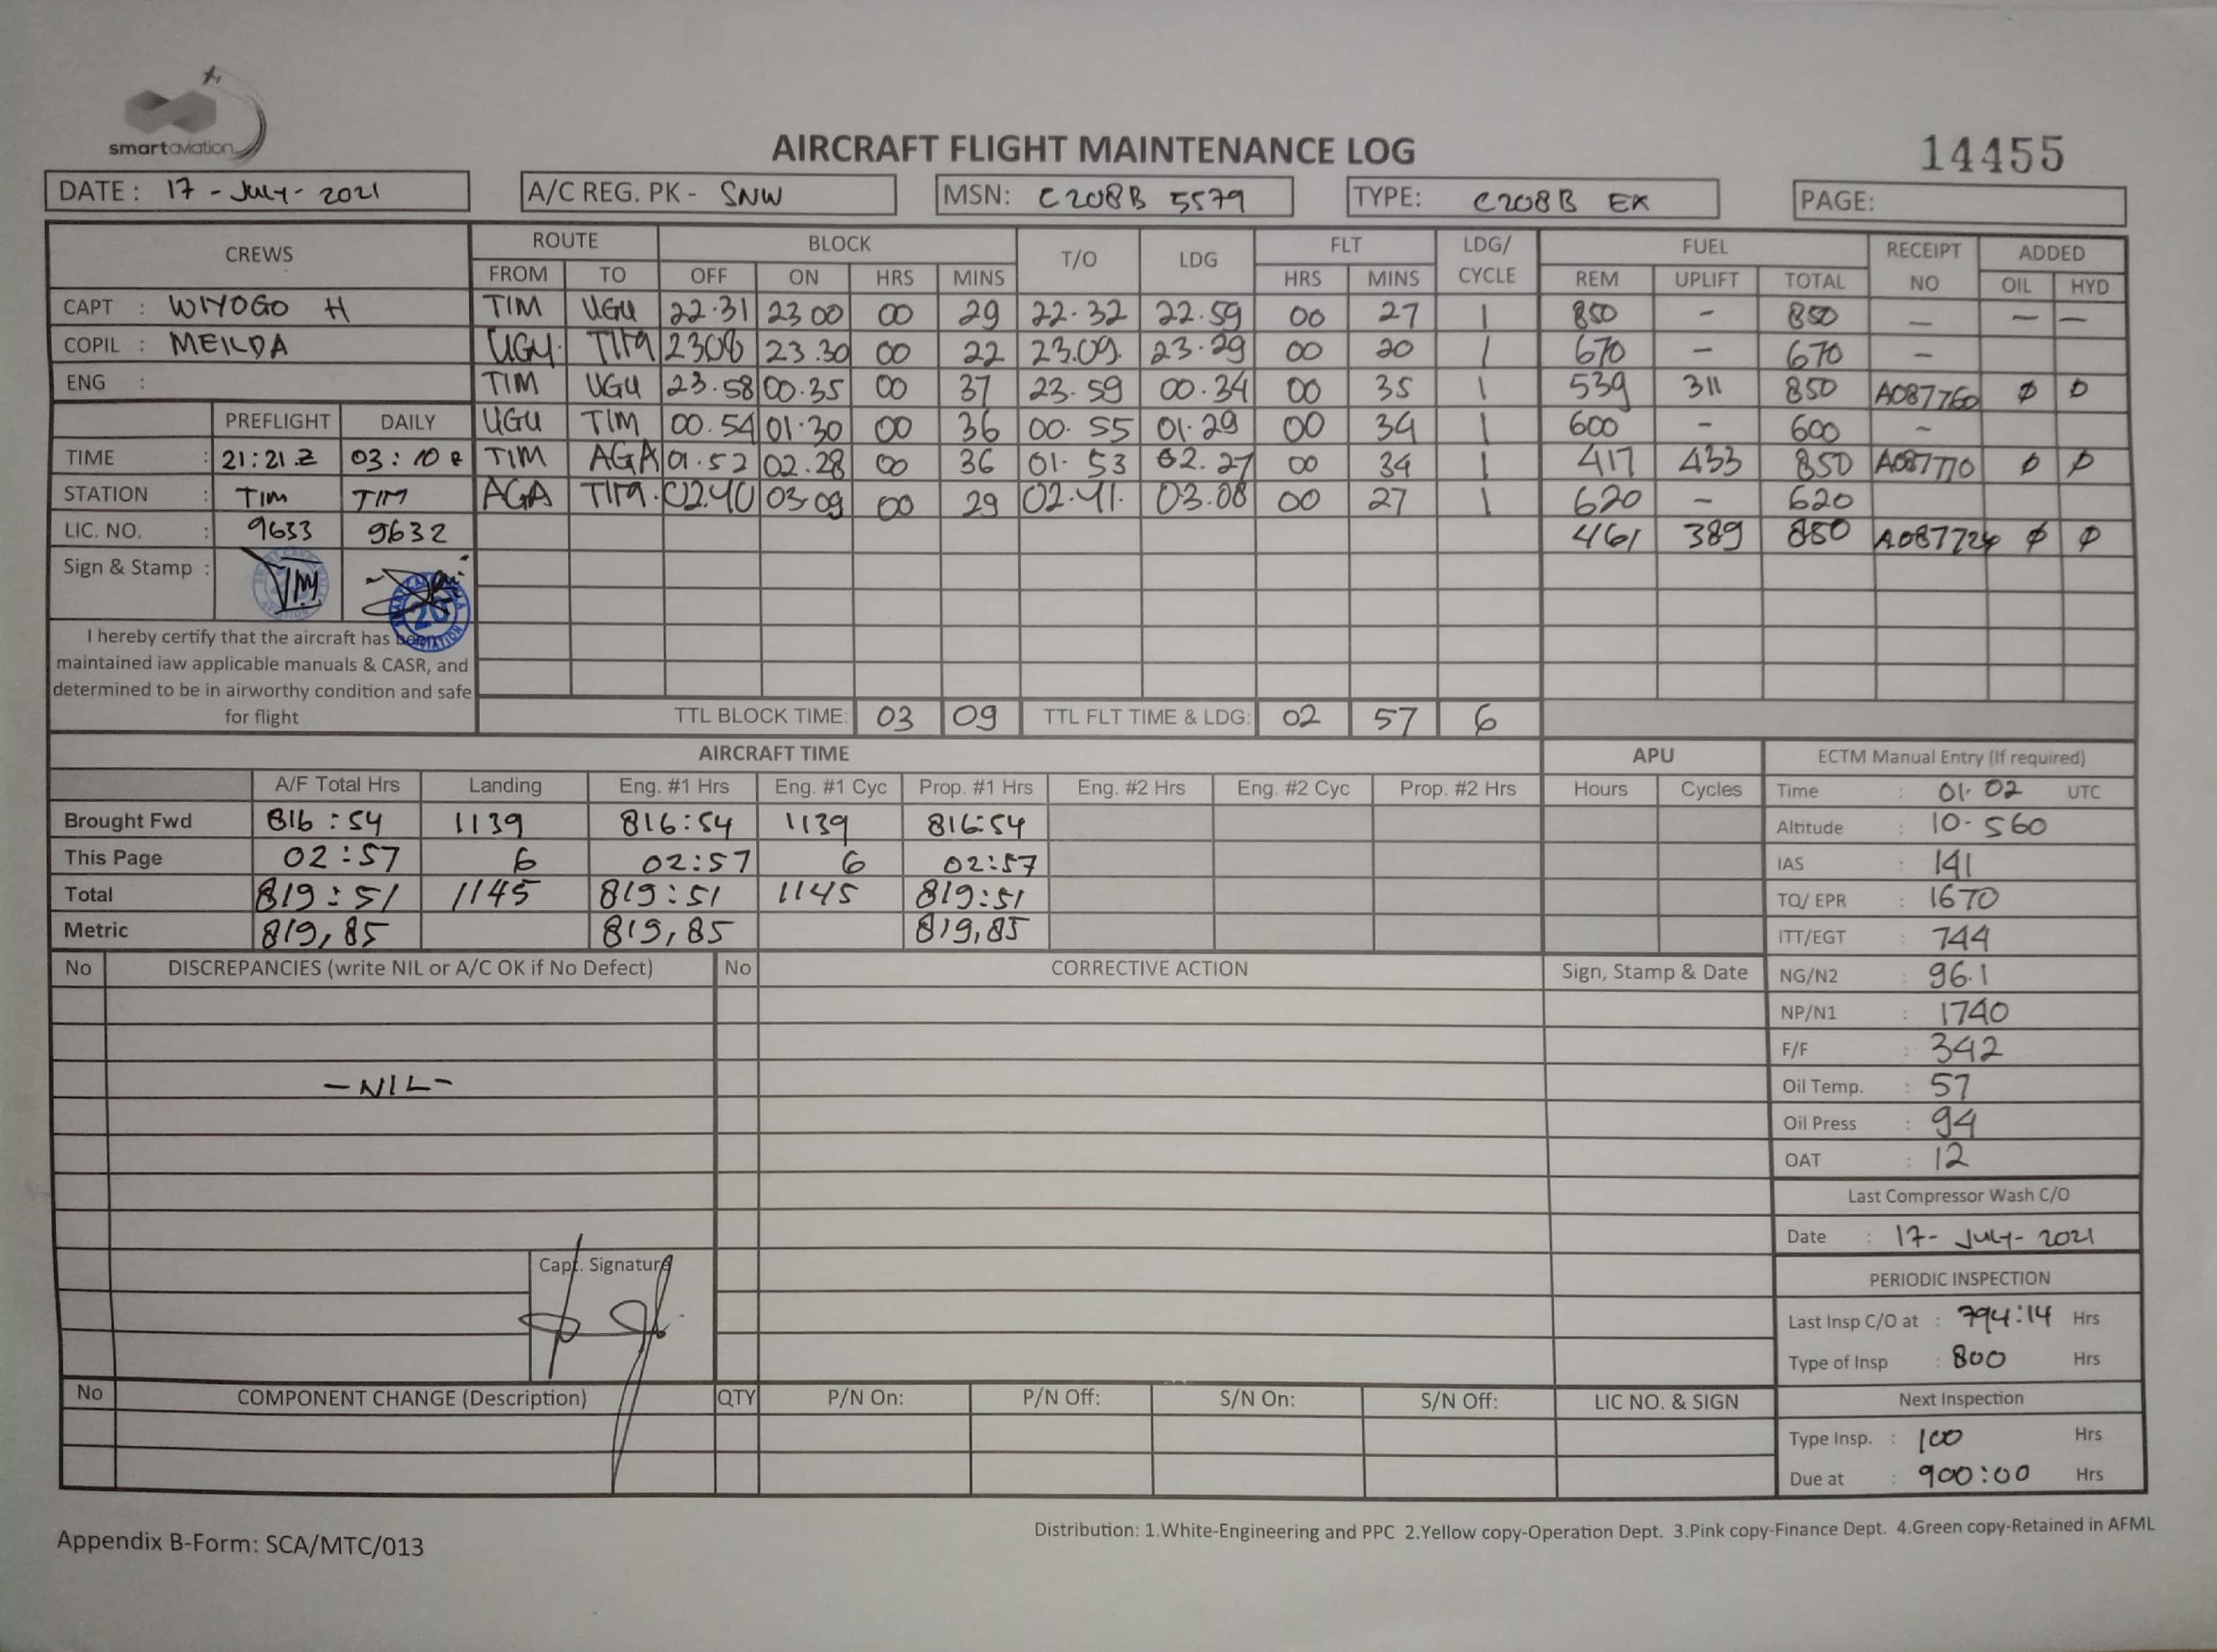 smartaviation
AIRCRAFT FLIGHT MAINTENANCE LOG
14455
DATE: 17 - July - 2021
A/C REG. PK - SNW
MSN: C208B 5579
TYPE: C208B EX
PAGE:
CREWS ROUTE BLOCK T/O LDG FLT LDG/ CYCLE FUEL RECEIPT NO ADDED
FROM TO OFF ON HRS MINS HRS MINS REM UPLIFT TOTAL OIL HYD
CAPT : WIYOGO H TIM UGU 22.31 23 00 00 29 22.32 22.59 00 27 1 850 - 850 — — —
COPIL : MEILDA UGU TIM 2308 23.30 00 22 23.09. 23.29 00 20 1 670 - 670 —
ENG : TIM UGU 23.58 00.35 00 37 23.59 00.34 00 35 1 539 311 850 A087760 Ø Ø
PREFLIGHT DAILY UGU TIM 00.54 01.30 00 36 00.55 01.29 00 34 1 600 - 600 ~
TIME : 21:21 Z 03:10 Z TIM AGA 01.52 02.28 00 36 01.53 02.27 00 34 1 417 433 850 A087770 Ø Ø
STATION : TIM TIM AGA TIM 02.40 03 09 00 29 02.41. 03.08 00 27 1 620 - 620
LIC. NO. : 9633 9632 461 389 850 Ø Ø
Sign & Stamp :
I hereby certify that the aircraft has been
maintained iaw applicable manuals & CASR, and
determined to be in airworthy condition and safe
for flight
TTL BLOCK TIME: 03 09 TTL FLT TIME & LDG: 02 57 6
AIRCRAFT TIME APU ECTM Manual Entry (If required)
A/F Total Hrs Landing Eng. #1 Hrs Eng. #1 Cyc Prop. #1 Hrs Eng. #2 Hrs Eng. #2 Cyc Prop. #2 Hrs Hours Cycles
Brought Fwd 816:54 1139 816:54 1139 816:54
This Page 02:57 6 02:57 6 02:57
Total 819:51 1145 819:51 1145 819:51
Metric 819,85 819,85 819,85
Time : 01.02 UTC
Altitude : 10.560
IAS : 141
TQ/ EPR : 1670
ITT/EGT : 744
NG/N2 : 96.1
NP/N1 : 1740
F/F : 342
Oil Temp. : 57
Oil Press : 94
OAT : 12
No DISCREPANCIES (write NIL or A/C OK if No Defect) No CORRECTIVE ACTION Sign, Stamp & Date
- NIL -
Capt. Signature
Last Compressor Wash C/O
Date : 17- July- 2021
PERIODIC INSPECTION
Last Insp C/O at : 794:14 Hrs
Type of Insp : 800 Hrs
Next Inspection
Type Insp. : 100 Hrs
Due at : 900:00 Hrs
No COMPONENT CHANGE (Description) QTY P/N On: P/N Off: S/N On: S/N Off: LIC NO. & SIGN
Appendix B-Form: SCA/MTC/013
Distribution: 1.White-Engineering and PPC 2.Yellow copy-Operation Dept. 3.Pink copy-Finance Dept. 4.Green copy-Retained in AFML